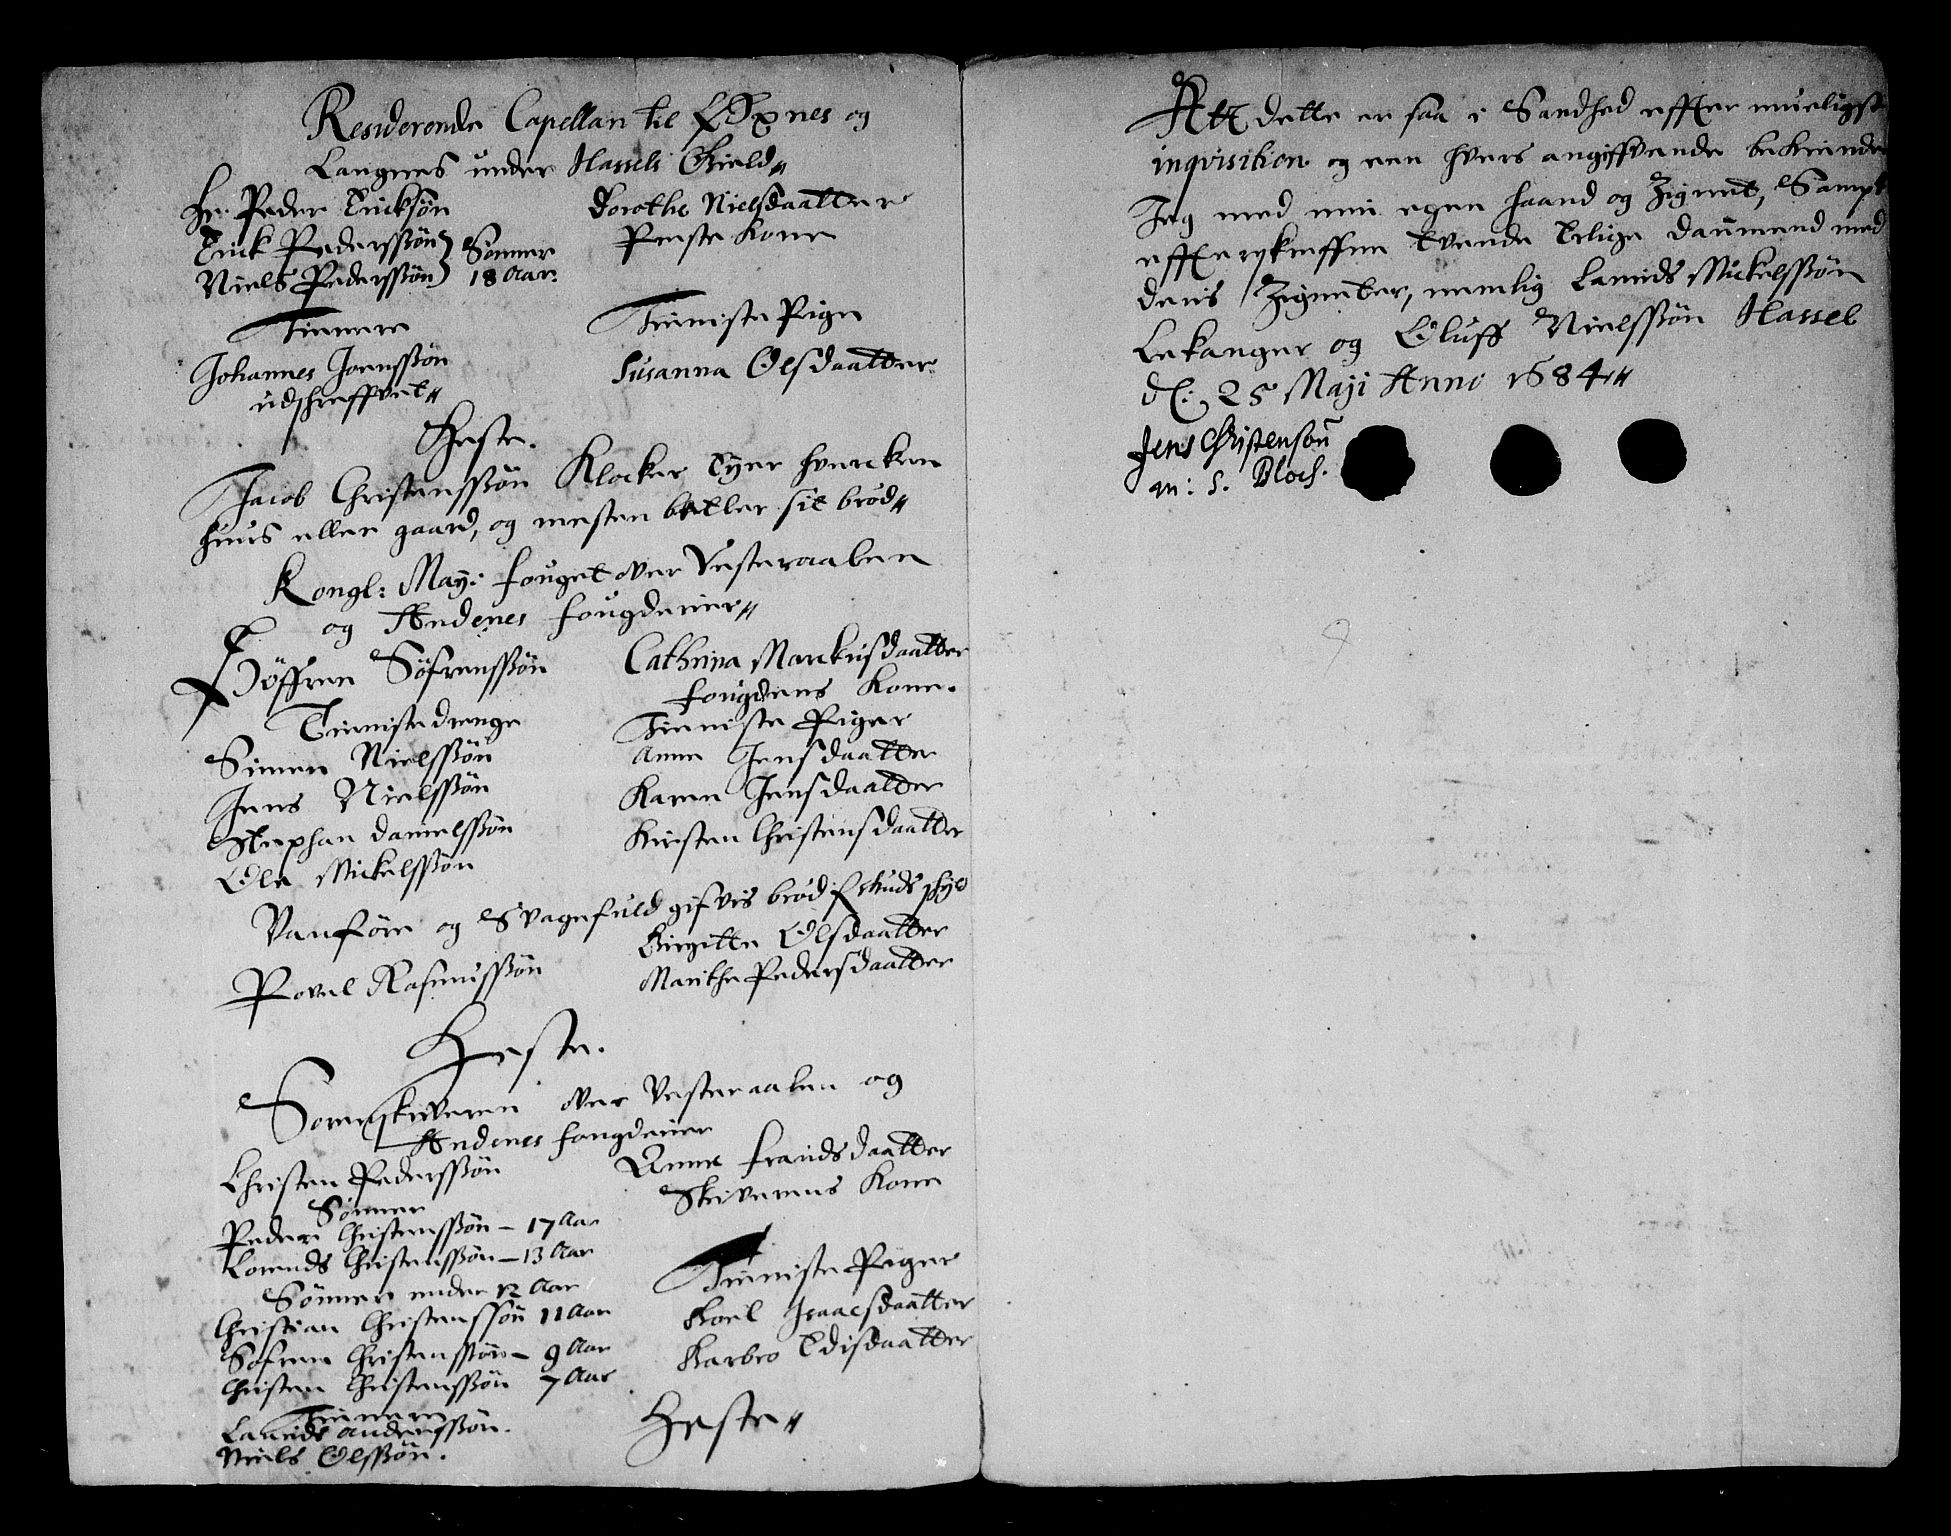 Residerende Capellan til Øxnes og
Langnes under Hassels Gield
Hr: Peder Ericksøn
Erick Pederssøn } Sønner
Niels Pederssøn } 18 Aar.
Tienere
Johannes Joenssøn
udschreffvet
Dorothe Nielsdaatter
Preste Kone
Tieniste Pige
Susanna Olsdaatter
Heste.
Jacob Christenssøn Klocker Eyer hvercken
huus eller gaard, og mesten betler sit brød
Kongl: May: fouget over Vesteraalen
og Andenes fougderier
Søffren Søfrenssøn
Tienistedrenge
Simen Nielssøn
Jens Nielssøn
Stephan Danielssøn
Ole Mickelssøn
Cathrina Marckusdaatter
fougdens Kone.
Tieniste Piger
Anne Jensdaatter
Karen Jensdaatter
Kirsten Christensdaatter
Vanføre og Svagefuld gifvis brød f Guds skyld
Povel Rasmussøn
Birgitte Olsdaatter
Marithe Pedersdaatter
Heste.
Sorenskriveren over Vesteraalen og
Andenes fougderier
Christen Pederssøn
Sønner
Peder Christenssøn – 17 Aar
Lorends Christenssøn – 13 Aar
Sønner under 12 Aar
Christian Christenssøn 11 Aar
Søfren Christenssøn – 9 Aar
Christen Christenssøn 7 Aar
Tienere
Laurids Anderssøn.
Niels Olssøn.
Anne Frandsdaatter
Skriverens Kone
Tieniste Piger
Boel Isaacsdaatter
Barbro Edisdaatter
Heste
Att dette er saa i Sandhed effter mueligste
inqvisition og een hvers angiffvende bekiender
Jeg med min egen haand og Zignet, Sampt
effterskreffne tvende Erlige Dannemend med
deris Zigneter, nemlig Laurids Mickelssøn
Lekanger og Oluff Nielssøn Hassel
d: 25 Maji Anno 1684
Jens Christensøn
m: s. Bloch.